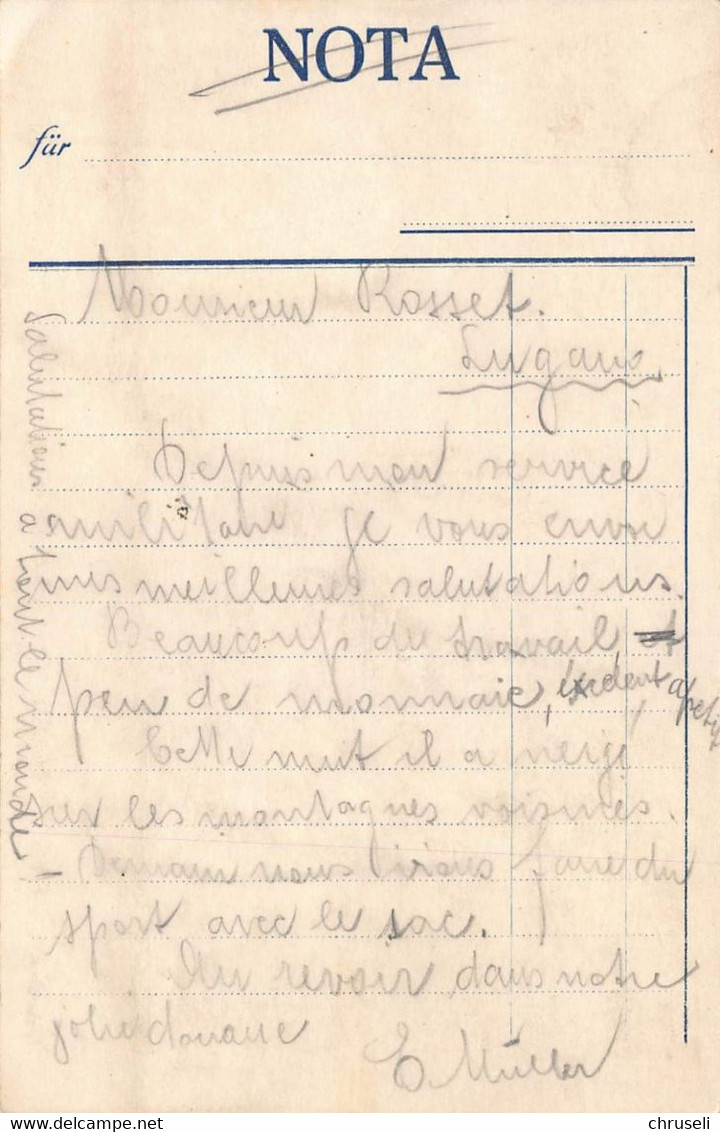 NOTA
für
Monsieur Rosset.
Lugano
Depuis mon service
militaire je vous envoie
mes meilleures salutations.
Beaucoup du travail et
peu de monnaie, excelent apetit
Cette nuit il a neigé
sur les montagnes voisines.
- Demain nous irons faire du
sport avec le sac.
Au revoir dans notre
jolie douane
E Müller
Salutations a tout le monde!
chruseli